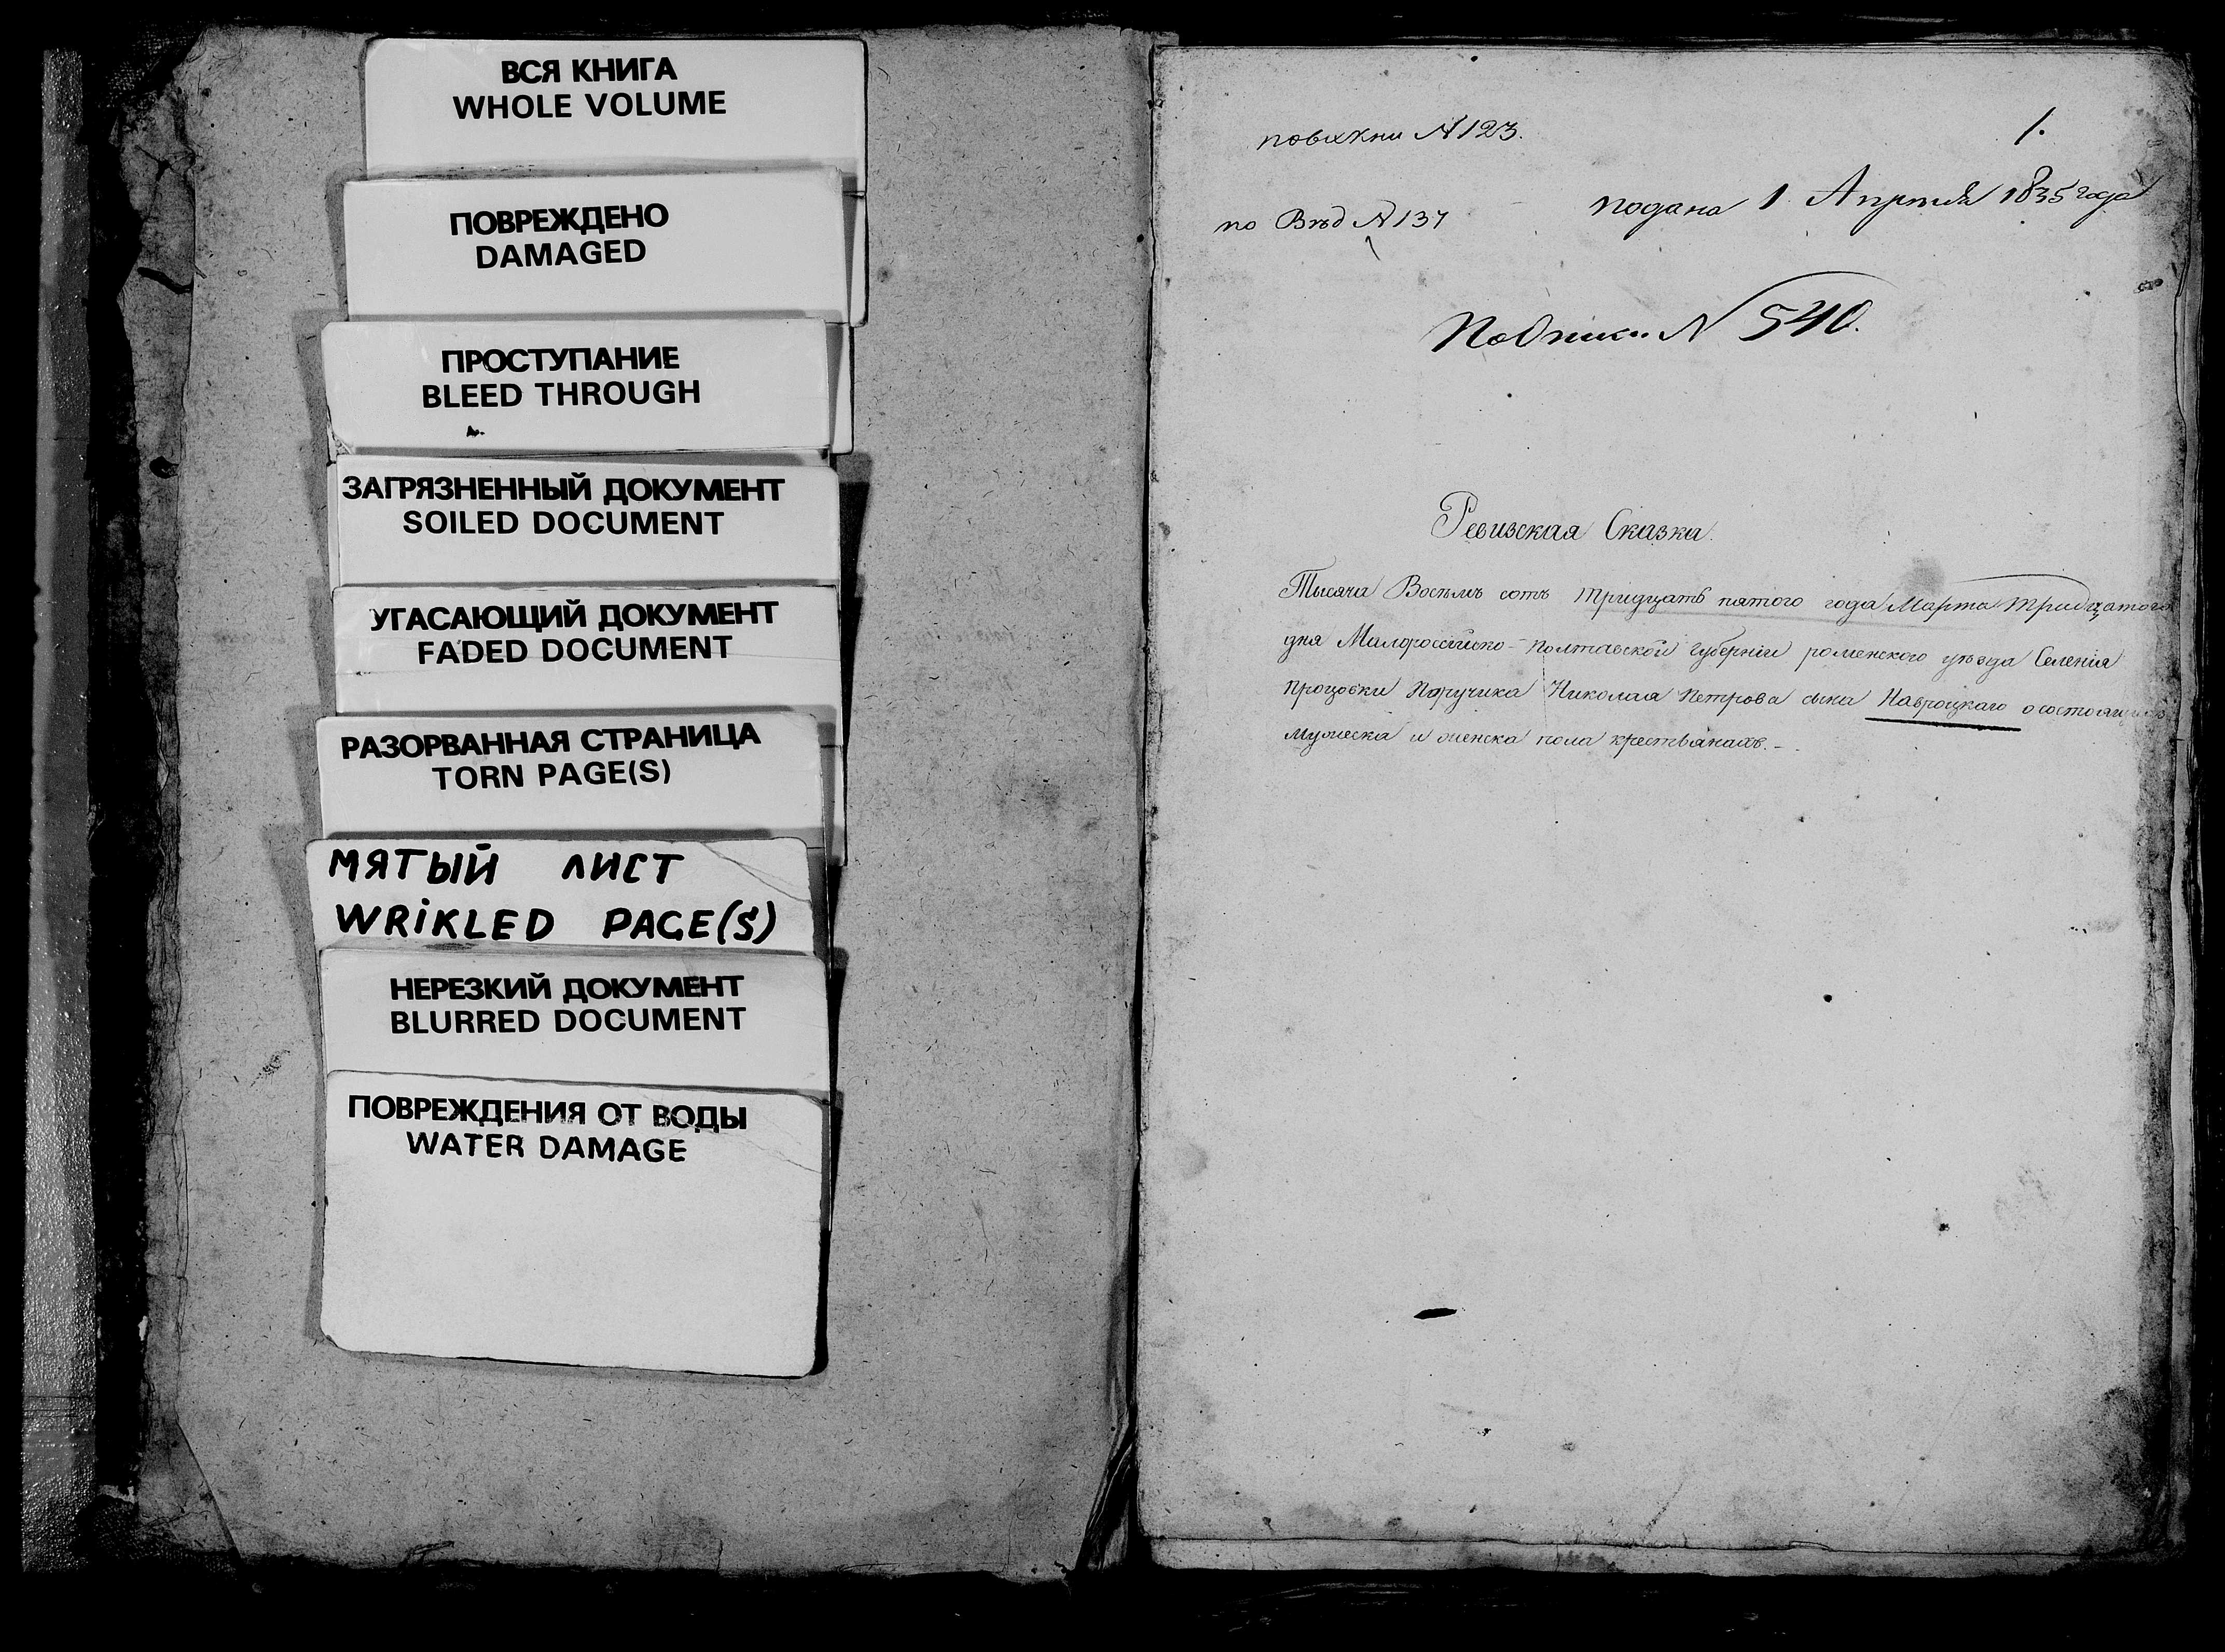 ВСЯ КНИГА
WHOLE VOLUME
ПОВРЕЖДЕНО
DAMAGED
ПРОСТУПАНИЕ
BLEED THROUGH
ЗАГРЯЗНЕННЫЙ ДОКУМЕНТ
SOILED DOCUMENT
УГАСАЮЩИЙ ДОКУМЕНТ
FADED DOCUMENT
РАЗОРВАННАЯ СТРАНИЦА
TORN PAGE(S)
МЯТЫЙ ЛИСТ
WRIKLED PAGE(S)
НЕРЕЗКИЙ ДОКУМЕНТ
BLURRED DOCUMENT
ПОВРЕЖДЕНИЯ ОТ ВОДЫ
WATER DAMAGE
№ 123.
1.
по Вѣд № 137
подана 1 Апреля 1835 года
№ 540.
Ревизская Сказка.
Тысяча Восемь сотъ тридцать пятого года Марта тридцатого
дня Малороссійско-Полтавской губерніи роменского уѣзда Селенія
Процовки Поручика Николая Петрова сына Навроцкаго о состоящихъ
мужеска и женска пола крестьянахъ.-